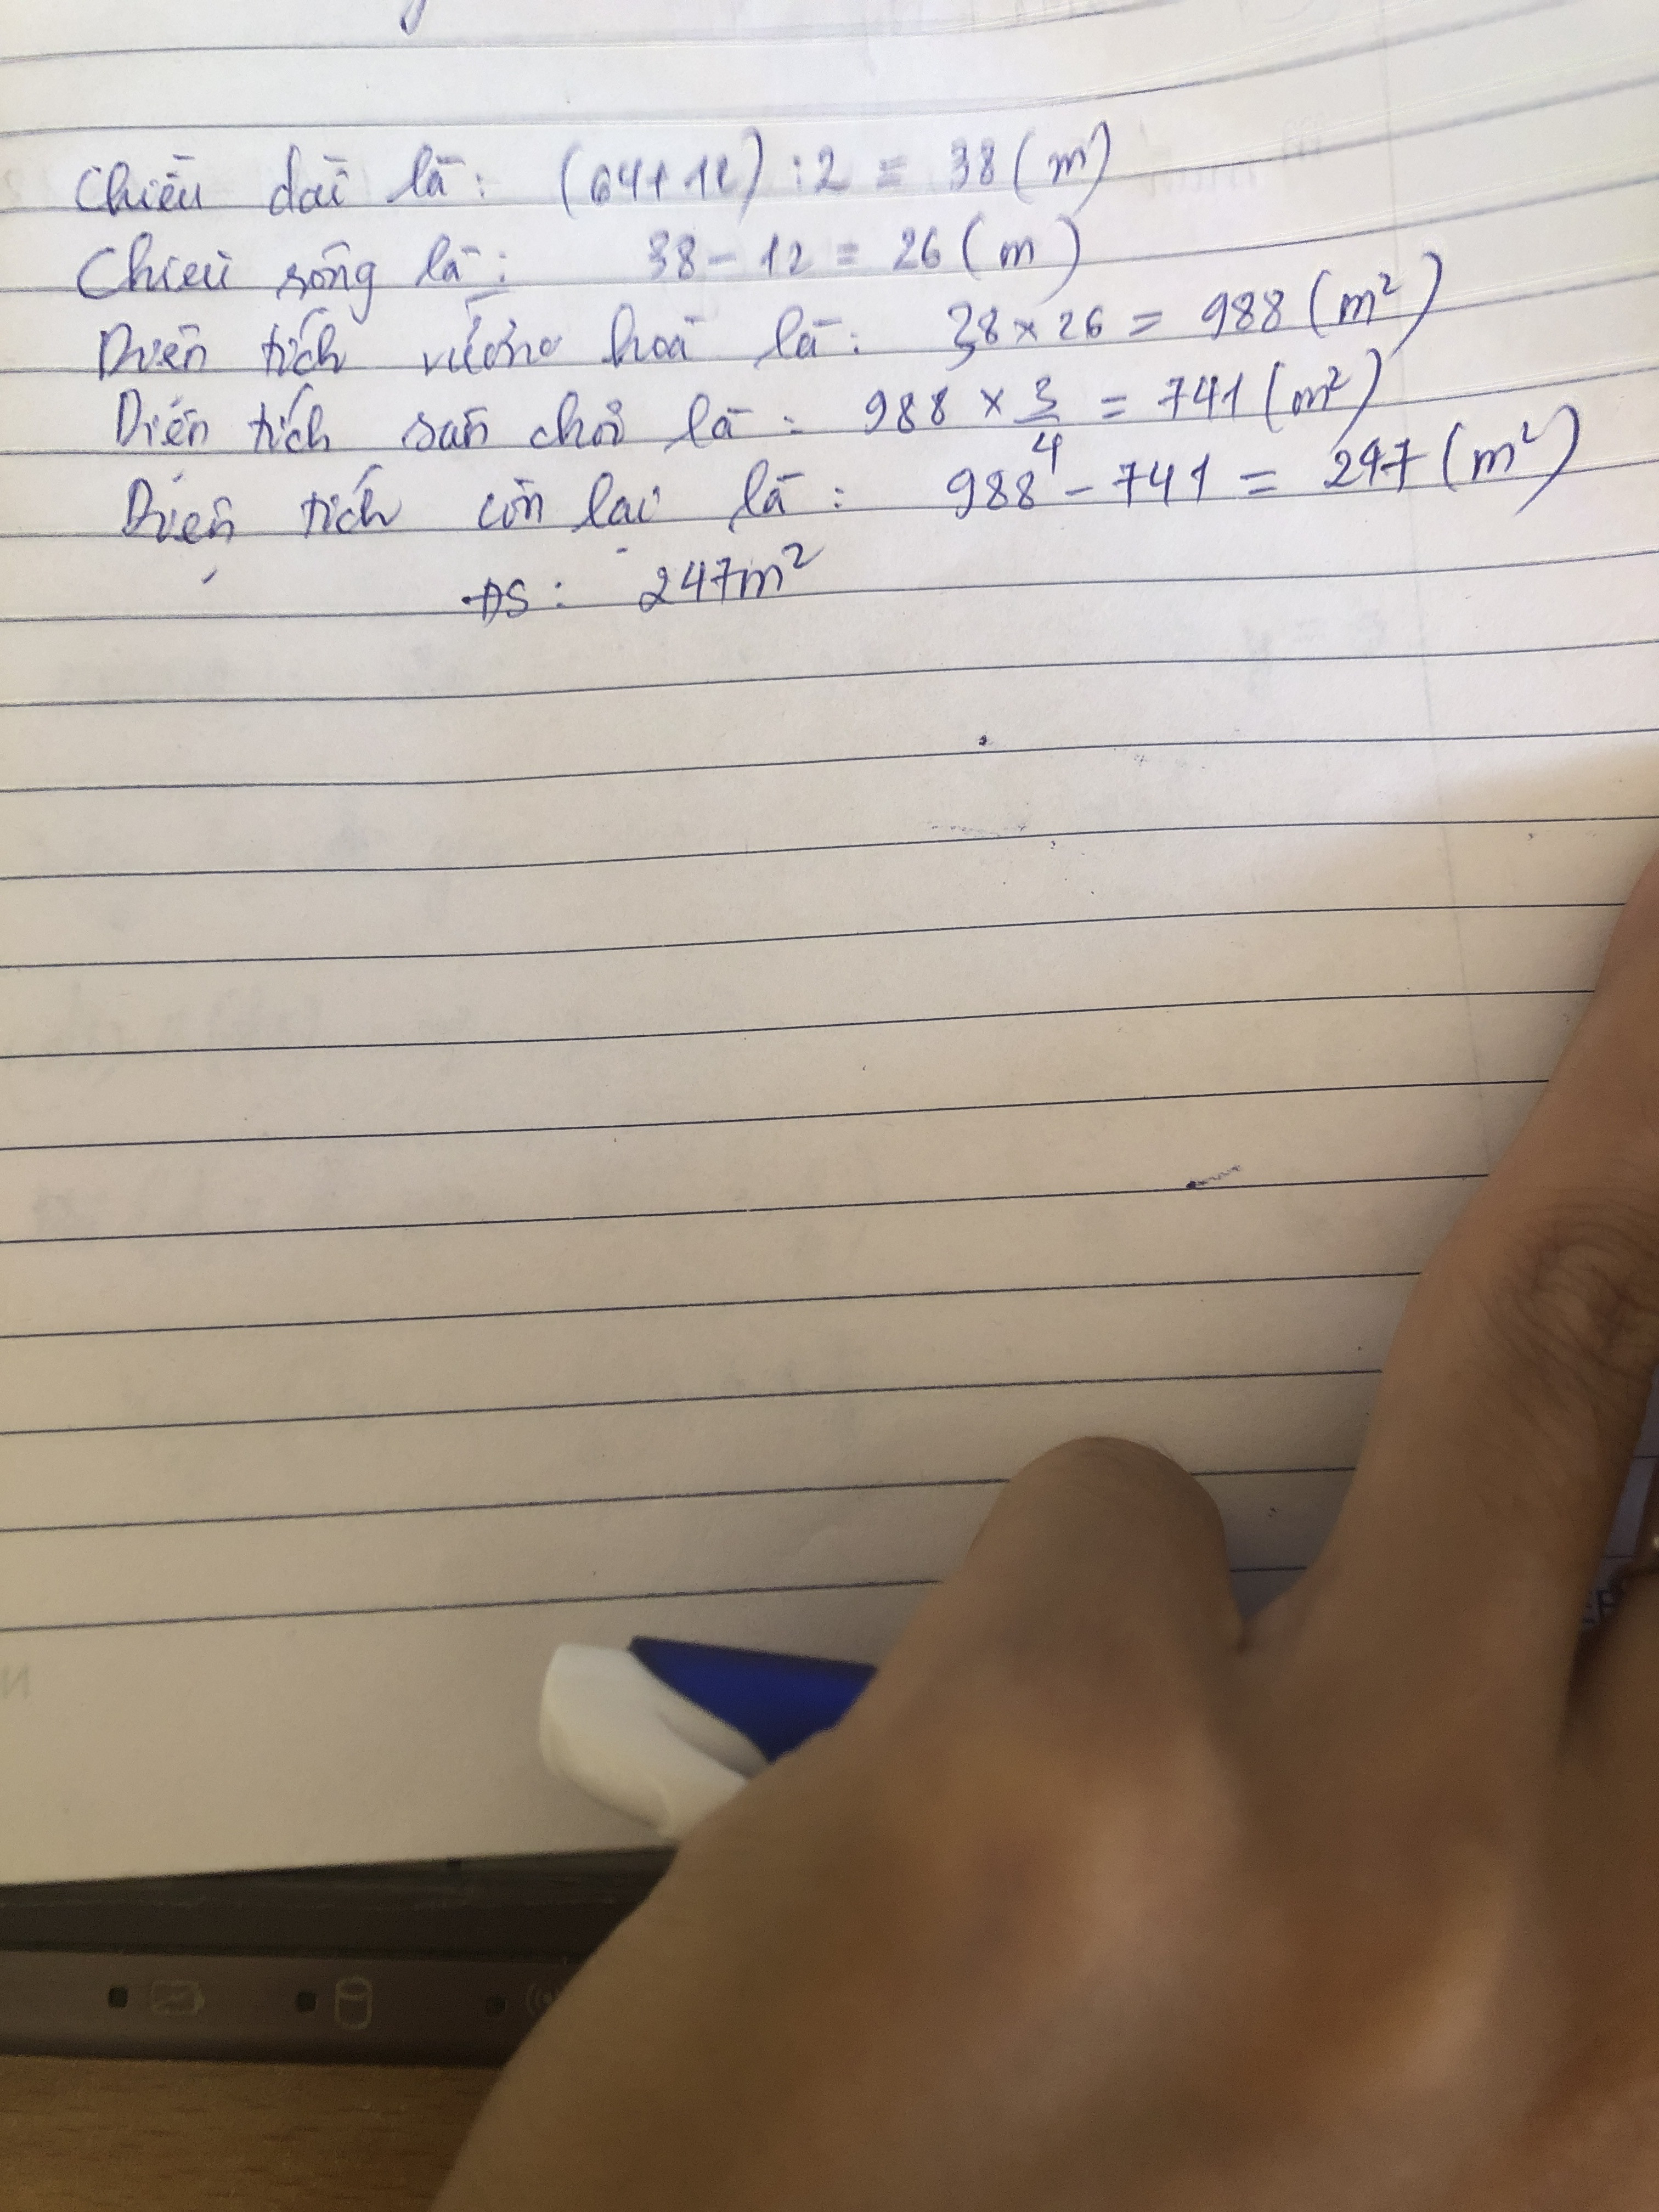 Chiều dài là: (64+12) :2 = 38 (m)
Chiều rộng là: 38 - 12 = 26 (m)
Diện tích vườn hoa là: 38 × 26 = 988 (m²)
Diện tích sân chơi là: 988 × 3/4 = 741 (m²)
Diện tích còn lại là: 988 - 741 = 247 (m²)
ĐS: 247m²